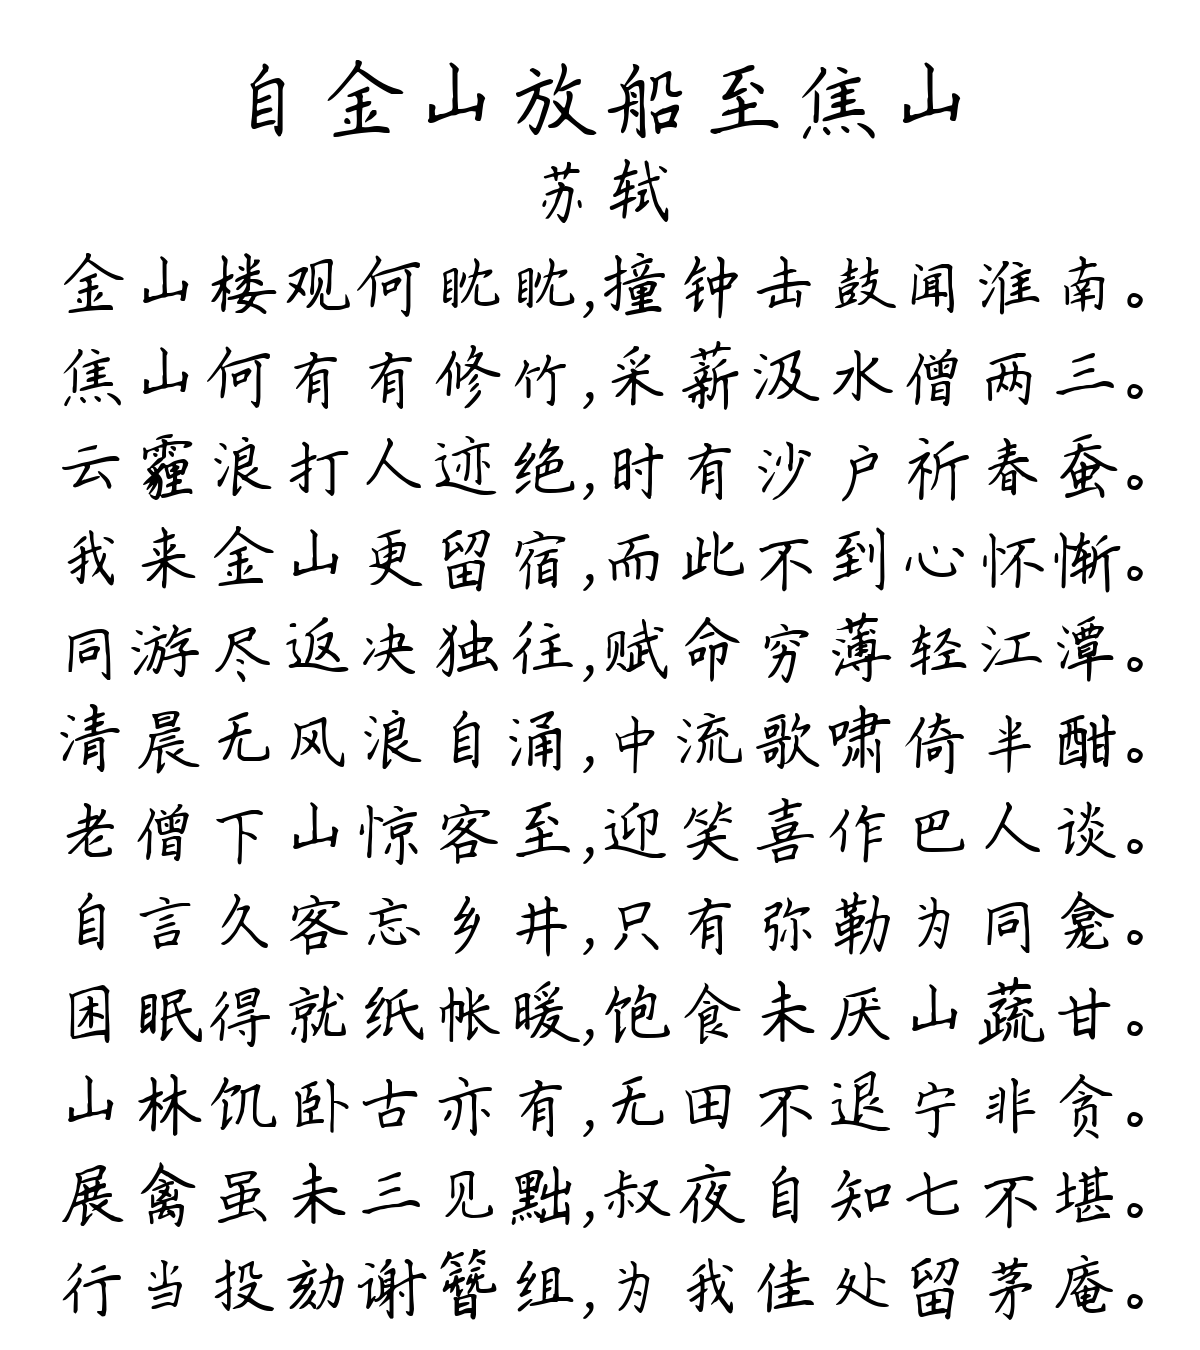 自金山放船至焦山
苏轼
金山楼观何眈眈,撞钟击鼓闻淮南。
焦山何有有修竹,采薪汲水僧两三。
云霾浪打人迹绝,时有沙户祈春蚕。
我来金山更留宿,而此不到心怀惭。
同游尽返决独往,赋命穷薄轻江潭。
清晨无风浪自涌,中流歌啸倚半酣。
老僧下山惊客至,迎笑喜作巴人谈。
自言久客忘乡井,只有弥勒为同龛。
困眠得就纸帐暖,饱食未厌山蔬甘。
山林饥卧古亦有,无田不退宁非贪。
展禽虽未三见黜,叔夜自知七不堪。
行当投劾谢簪组,为我佳处留茅庵。